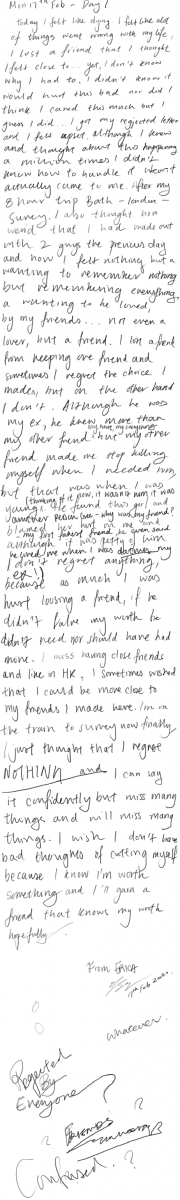 Mon 17th Feb - Day 1
Today I felt like dying. I felt like alot
of things went wrong with my life,
I lost a friend that I thought
I felt close to... yet, I don't know
why I had to. I didn't know it
would hurt this bad nor did I
think I cared this much but I
guess I did... I got my rejected letter
and I felt upset, although I know
and thought about this happening
a million times I didn't
know how to handle it when it
actually came to me. After my
8 hour trip Bath - london -
Surrey. I also thought how
weird that I had made out
with 2 guys the previous day
and now I felt nothing but a
wanting to remember nothing
but remembering everything,
a wanting to be loved,
by my friends... not even a
lover, but a friend. I lost a friend
from keeping one friend and
sometimes I regret the choice I
made, but on the other hand
I don't. Although he was
my ex, he knew more than
my other friend, but my other
friend made me stop killing
myself when I needed him,
but that was when I was
(thinking of it now, it wasn't him it was
young. He found this girl and
another person
blamed her hurt on me and
although I was
he loved me when I was
I don't regret anything,
because as much I was
hurt loosing a friend, if he
didn't value my worth he
didn't need nor should have had
mine. I miss having close friends
and live in HK, I sometimes wished
that I could be more close to
my friends I made here. I'm on
the train to surrey now finally
I just thought that I regret
NOTHING and I can say
it confidently but miss many
things and will miss many
things. I wish I don't have
bad thoughts of cutting myself
because I know I'm worth
something and I'll gain a
friend that knows my worth
hopefully.
From ERICA
17th Feb 2020.
whatever.
Rejected
By
Everyone?
?
?
Confused.?